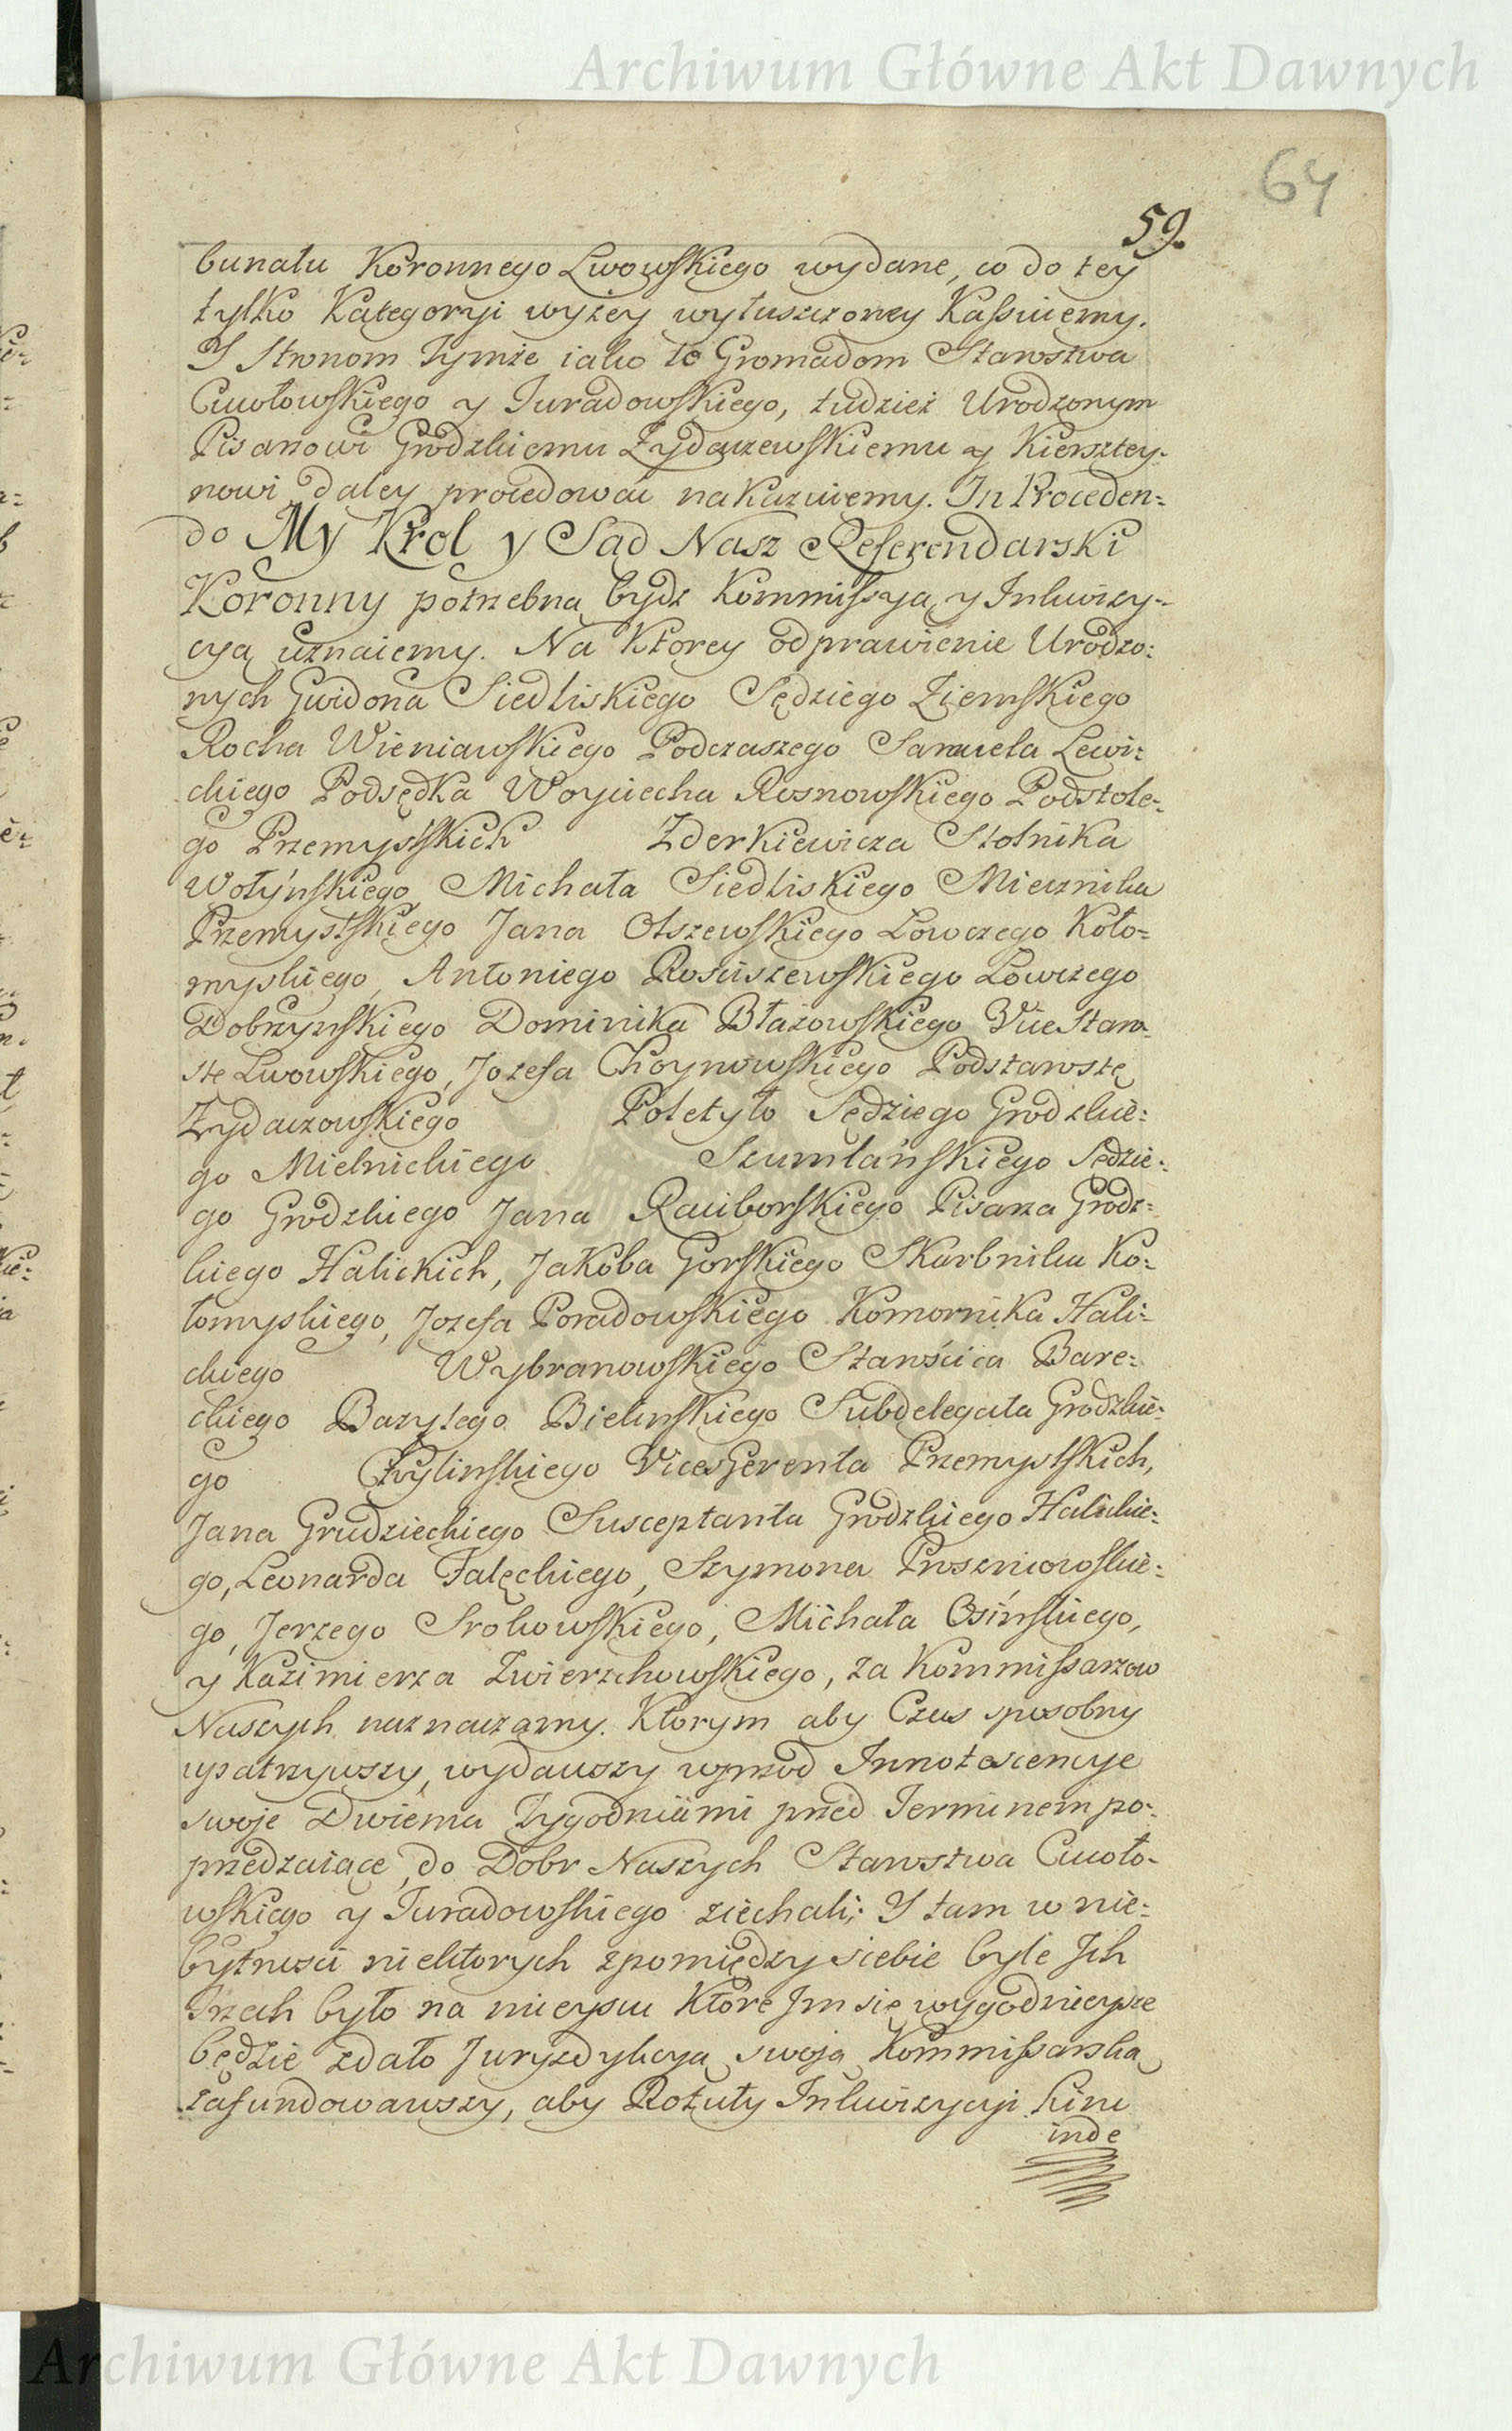 Archiwum Główne Akt Dawnych
64
59.
bunału Koronnego Lwowskiego wydane, co do tey
tylko Kategoryi wyżey wyłuszczoney Kassuiemy.
Y Stronom Tymże iako to Gromadom Starostwa
Cucołowskiego y Juradowskiego, tudzież Urodzonym
Pisarzowi Grodzkiemu Zydaczewskiemu y Kiersztey-
nowi daley procedować nakazuiemy. In Proceden=
do My Krol y Sąd Nasz Referendarski
Koronny potrzebną bydz Kommissyą y Inkwizy-
cyą uznaiemy. Na Ktorey odprawienie Urodzo=
nych Gwidona Siedliskiego Sędziego Ziemskiego
Rocha Wieniawskiego Podczaszego Samuela Lewi=
ckiego Podsędka Woyciecha Rosnowskiego Podstole=
go Przemyslskich Zderkiewicza Stolnika
Wołyńskiego Michała Siedliskiego Miecznika
Przemyslskiego Jana Olszewskiego Łowczego Koło=
myskiego, Antoniego Rosciszewskiego Łowczego
Dobrzynskiego Dominika Błażowskiego ViceStaro=
stę Lwowskiego, Jozefa Choynowskiego Podstarostę
Zydaczowskiego Poletyło Sędziego Grodzkie=
go Mielnickiego Szumlańskiego Sędzie=
go Grodzkiego Jana Raciborskiego Pisarza Grodz=
kiego Halickich, Jakoba Gorskiego Skarbnika Ko=
łomyskiego, Jozefa Poradowskiego Komornika Hali=
ckiego Wybranowskiego Starościca Bare=
ckiego Bazylego Bielinskiego Subdelegata Grodzkie=
go Chylinskiego ViceGerenta Przemyslskich,
Jana Grudzieckiego Susceptanta Grodzkiego Halickie=
go, Leonarda Fałęckiego, Szymona Proszniowskie=
go, Jerzego Srokowskiego, Michała Osińskiego,
y Kazimierza Zwierzchowskiego, za Kommissarzow
Naszych naznaczamy. Ktorym aby Czas sposobny
upatrzywszy, wydawszy wprzod Innotescencye
swoje Dwiema Tygodniami przed Terminem po=
przedzaiące, do Dobr Naszych Starostwa Cucoło-
wskiego y Juradowskiego ziechali; Y tam w nie=
bytnosci niektorych zpomiędzy siebie byle Jch
Trzech było na mieyscu Ktore Jm się wygodnieysze
będzie zdało Juryzdykcyą swoją Kommissarską
zafundowawszy, aby Rotuły Inkwizycyi hinc
inde
Archiwum Główne Akt Dawnych